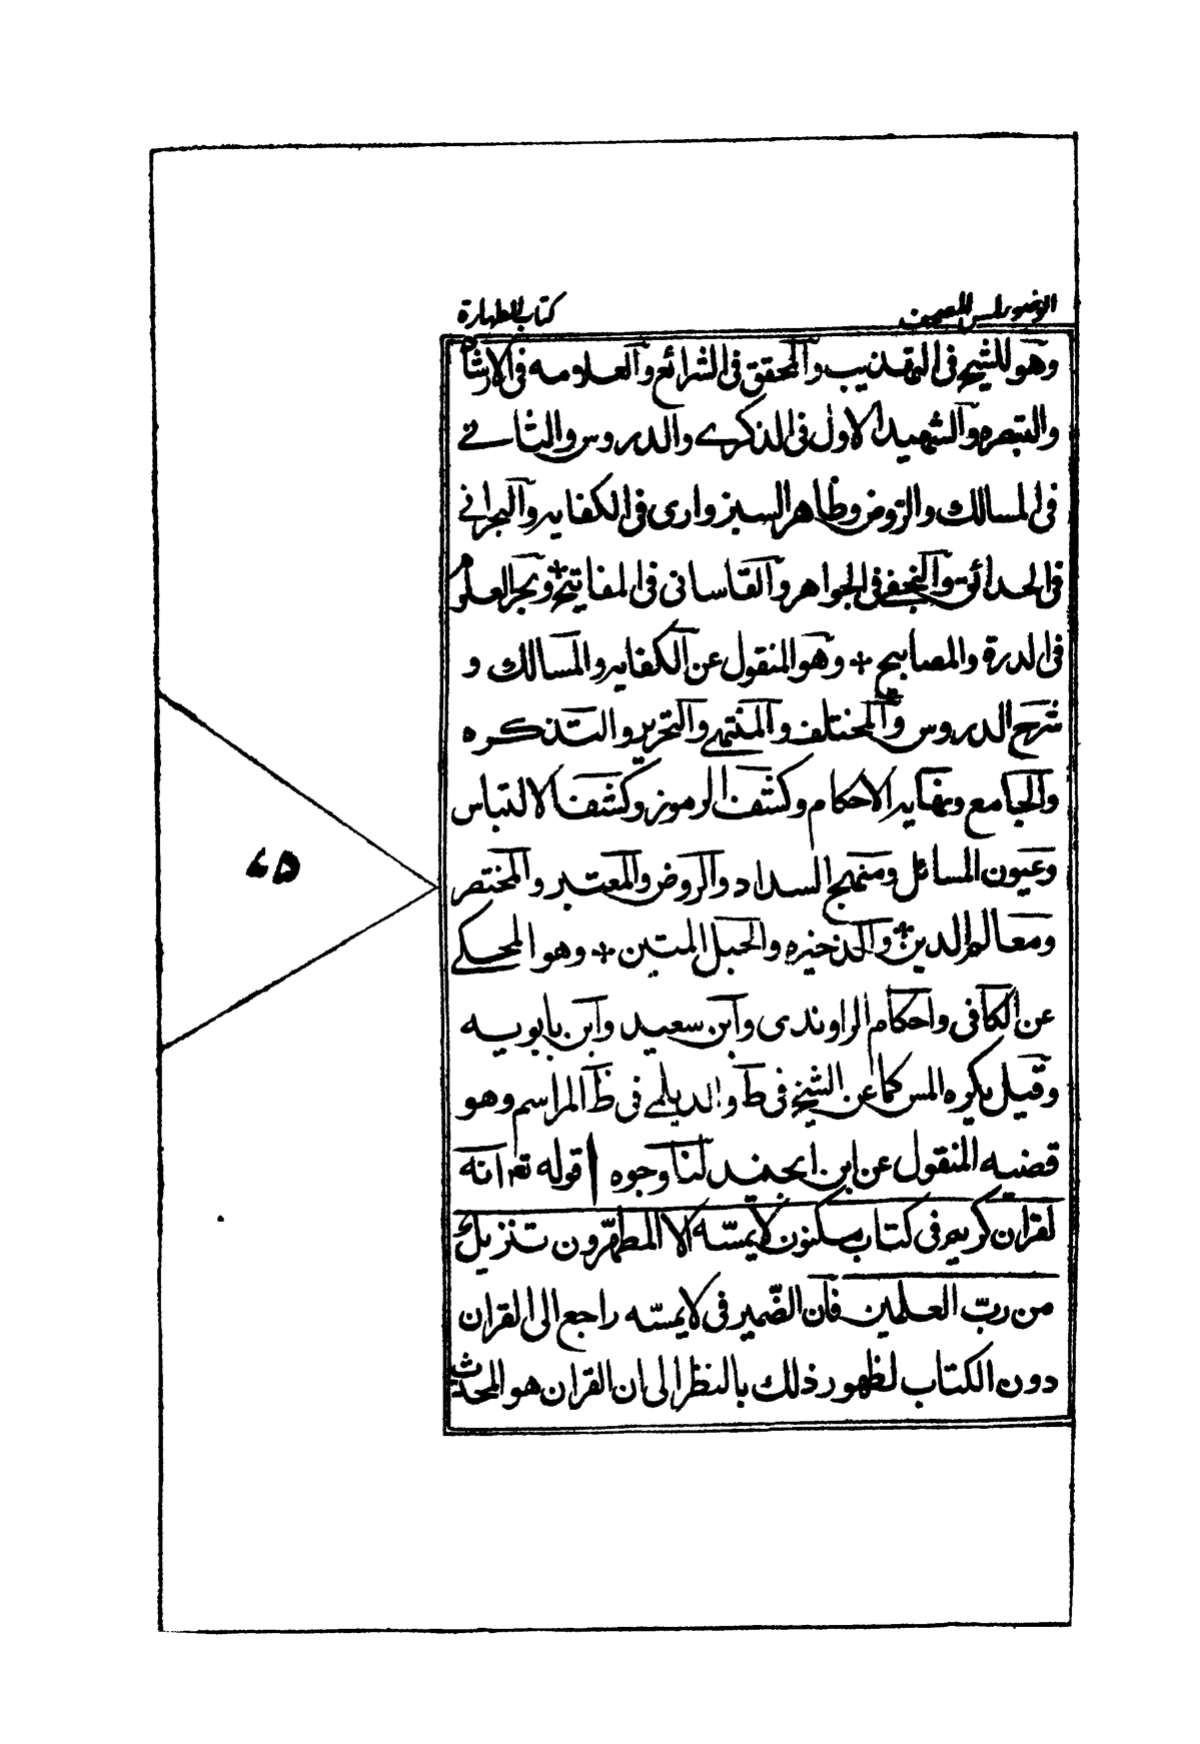 الوضوء لمس المصحف
كتاب الطهارة
وهو للشيخ فى التهذيب والمحقق فى الشرائع والعلامه فى الارشاد
والتبصره والشهيد الاول فى الذكرى والدروس والثانى
فى المسالك والروض وظاهر السبزوارى فى الكفايه والبحرانى
فى الحدائق والنجفى فى الجواهر والقاسانى فى المفاتيح وبحر العلوم
فى الدرة والمصابيح + وهو المنقول عن الكفايه والمسالك و
شرح الدروس والمختلف والمنتهى والتحرير والتذكره
والجامع ونهايه الاحكام وكشف الرموز وكشف الالتباس
وعيون المسائل ومنهج السداد والروض والمعتبر والمختصر
ومعالم الدين والذخيره والحبل المتين + وهو المحكى
عن الكافى واحكام الراوندى وابن سعيد وابن بابويه
وقيل يكره المس كما عن الشيخ فى ط والديلمى فى ظ المراسم وهو
قضيه المنقول عن ابن الجنيد لنا وجوه ا قوله تع انه
لقران كريم فى كتاب مكنون لا يمسّه الا المطهّرون تنزيل
من ربّ العلمين فان الضّمير فى لا يمسّه راجع الى القران
دون الكتاب لظهور ذلك بالنظر الى ان القران هو المحدث